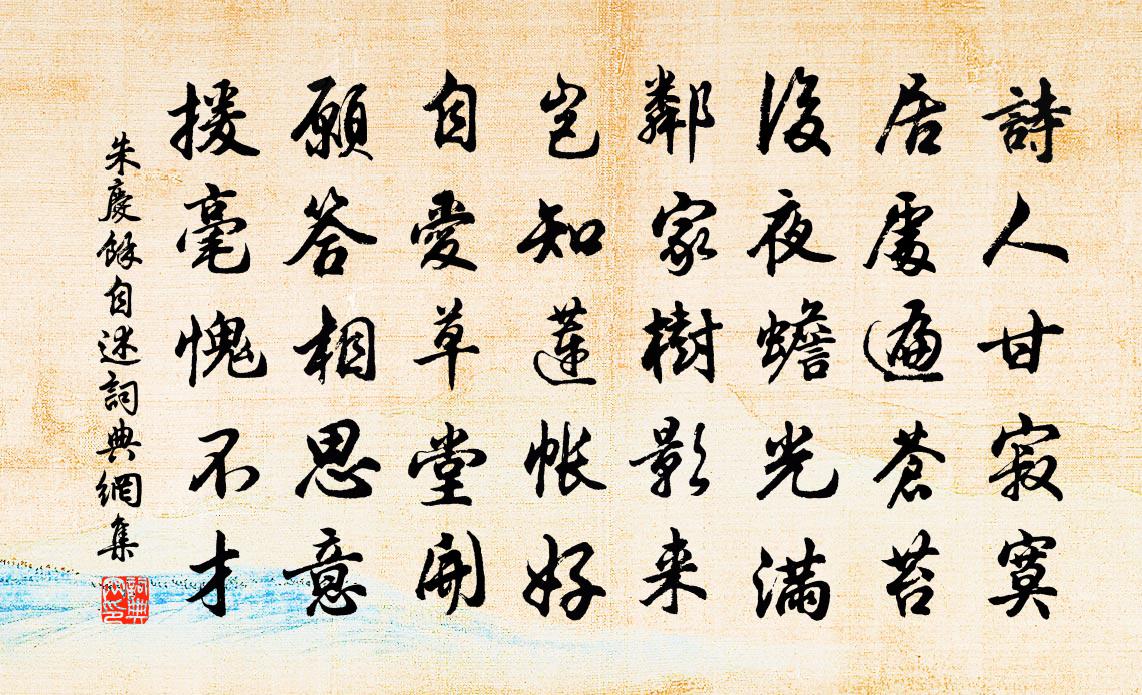 詩人甘寂寞
居處遍蒼苔
後夜蟾光滿
鄰家樹影来
豈知蓮帳好
自愛草堂開
願答相思意
援毫愧不才
朱慶餘自述詞典網集